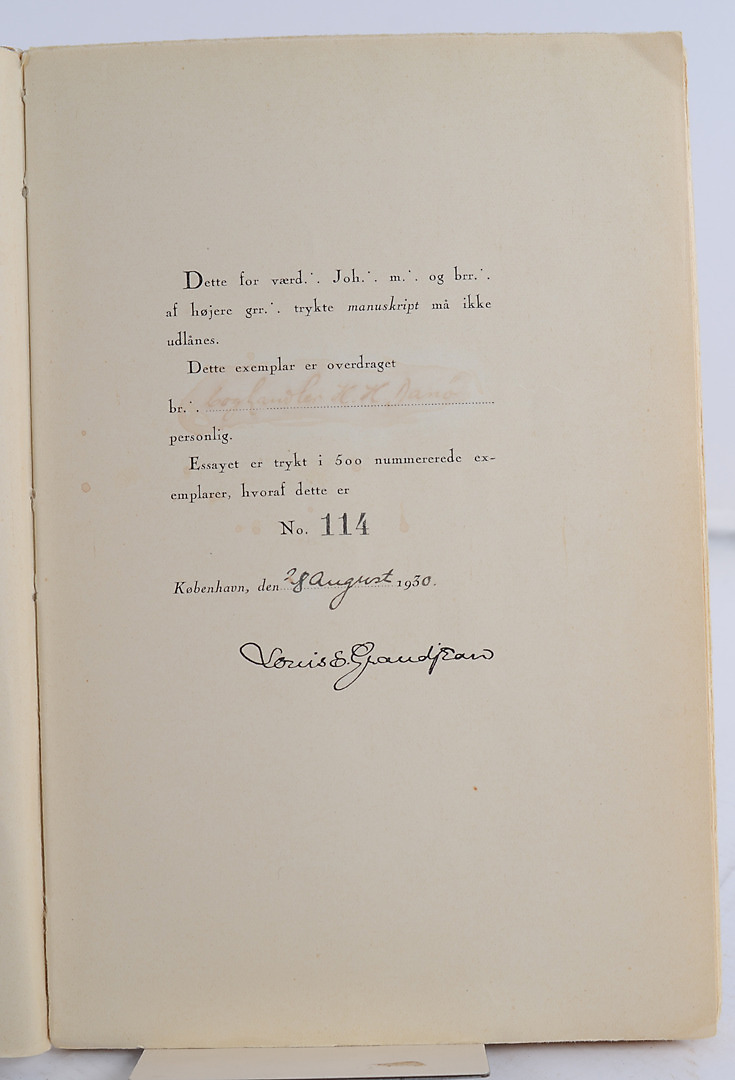 Dette for værd.·. Joh.·. m.·. og brr.·.
af højere grr.·. trykte manuskript må ikke
udlånes.
Dette exemplar er overdraget
br.·. boghandler H. H. Danø
personlig.
Essayet er trykt i 500 nummererede ex-
emplarer, hvoraf dette er
No. 114
København, den 28 August 1930.
Louis E. Grandjean